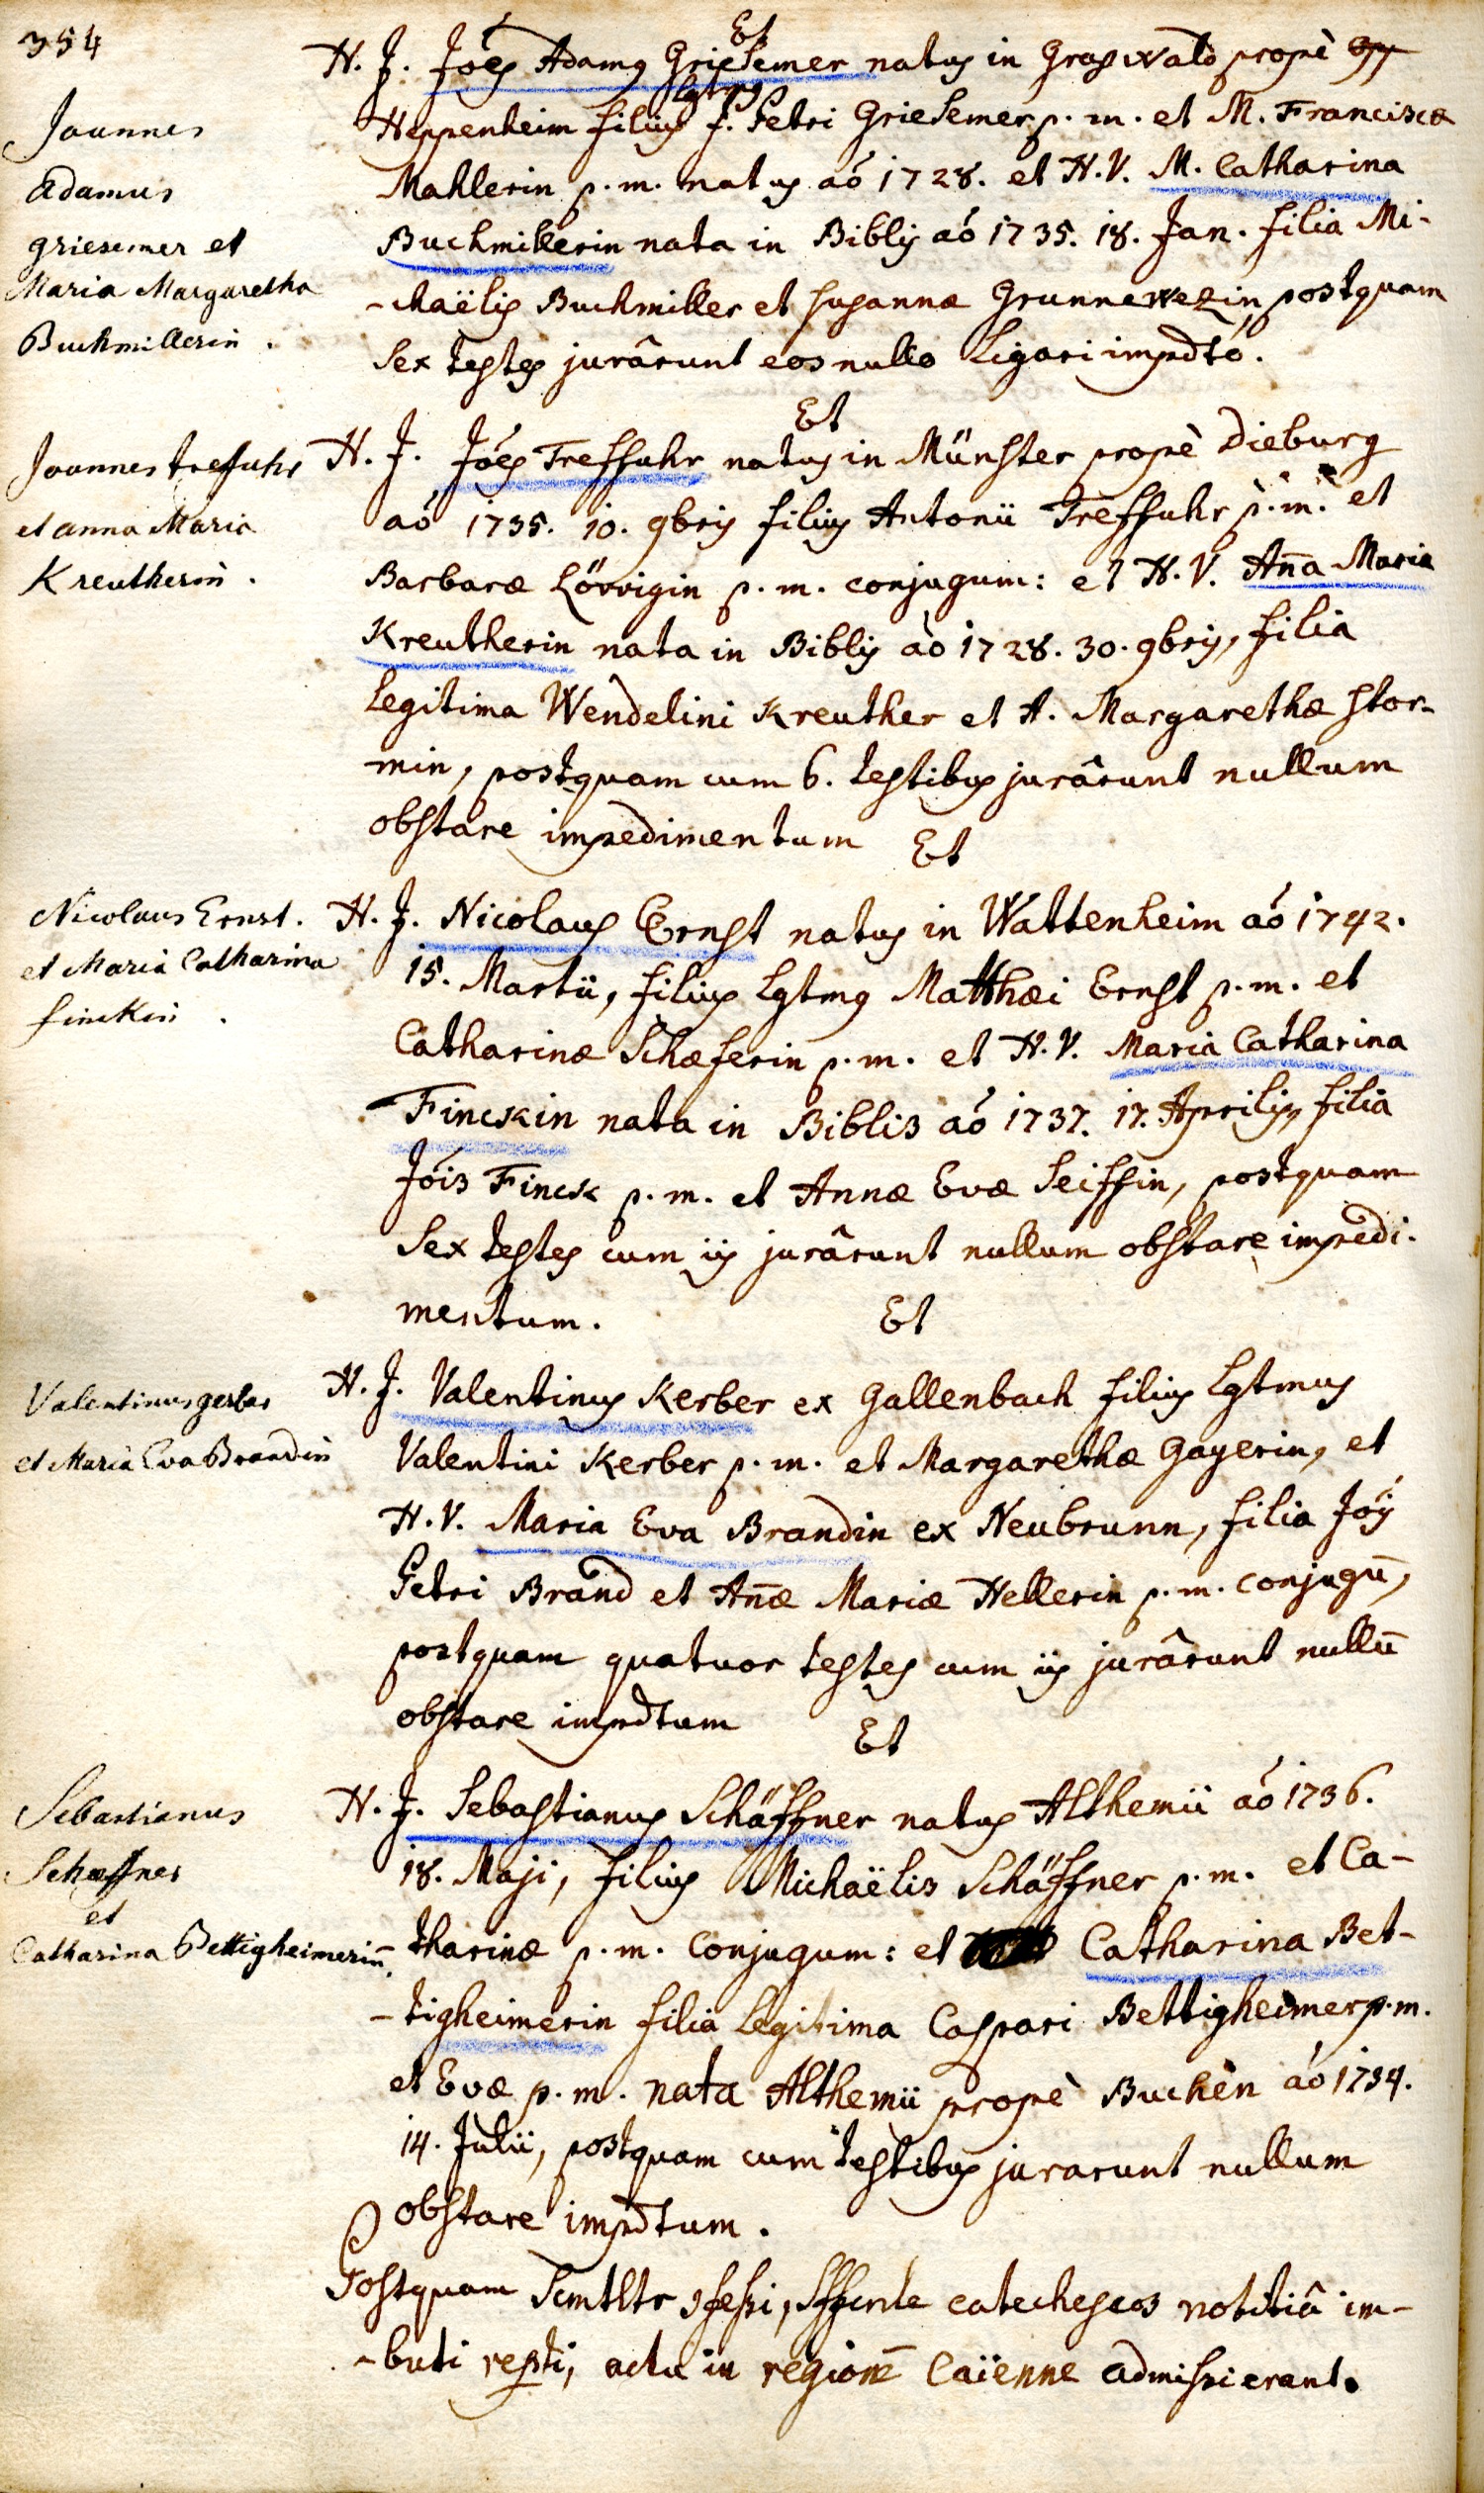 354
Joannes
Adamus
griesemer et
Maria Margaretha
Buchmillerin .
Et
H. J. Jóes Adamg Griesemer natus in Graswald propè
lgtmg
Heppenheim filius f. Petri Griesemer p. m. et M. Franciscæ
Mahlerin p. m. natus aó 1728. et H. V. M. Catharina
Buchmillerin nata in Biblis aó 1735. 18. Jan. filia Mi-
-chaëlis Buchmiller et Susannæ Grunnewezin, postquam
sex testes jurârunt eos nullo Ligari impdtó.
Joannes treffuhr
et anna Maria
Kreutherin .
Et
H. J. Jóes Treffuhr natus in Münster propè Dieburg
aó 1735. 10. 9bris filius Antonii Treffuhr p. m. et
Barbaræ Lövvigin p. m. conjugum: et H. V. Aña Maria
Kreutherin nata in Biblis aó 1728. 30. 9bris, filia
Legitima Wendelini Kreuther et A. Margarethæ Stor-
min, postquam cum 6. testibus jurârunt nullum
obstare impedimentum
Et
Nicolaus Ernst.
et Maria Catharina
finckin .
H. J. Nicolaus Ernst natus in Wattenheim aó 1742.
15. Martii, filius Lgtmg Matthæi Ernst p. m. et
Catharinæ Schæferin p. m. et H. V. Maria Catharina
Finckin nata in Biblis aó 1737. 17. Aprilis, filia
Jóis Finck p. m. et Annæ Evæ Seiffin, postquam
Sex testes cum iis jurârunt nullum obstare impedi-
mentum.
Et
Valentinus gerber
et Maria Eva Brandin
H. J. Valentinus Kerber ex Gallenbach filius Lgtmus
Valentini Kerber p. m. et Margarethæ Gayerin, et
H. V. Maria Eva Brandin ex Neubrunn, filia Jóis
Petri Brand et Añæ Mariæ Hellerin p. m. conjugū,
postquam quatuor testes cum iis jurârunt nullū
obstare impdtum
Et
Sebastianus
Schæffner
et
Catharina Bettigheimerin
H. J. Sebastianus Schäffner natus Althemii aó 1736.
18. Maji, filius Michaëlis Schäffner p. m. et Ca-
-tharinæ p. m. Conjugum: et Catharina Bet-
-tigheimerin filia Legitima Caspari Bettigheimer p. m.
et Evæ p. m. nata Althemii propè Buchen aó 1734.
14. Julii, postquam cum testibus jurarunt nullum
obstare impdtum.
Postquam Scmtltr 9fessi, Sffcnte catecheseos notitiâ im-
-buti repti, actu in regionē Caïenne admissi erant.